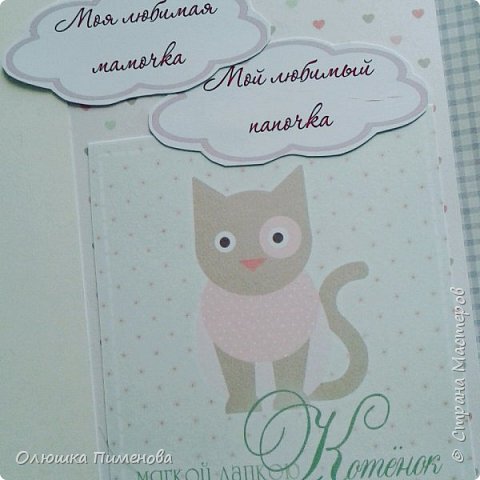 Моя любимая
мамочка
Мой любимый
папочка
Котёнок
мягкой лапкой
Олюшка Пименова
© Страна Мастеров